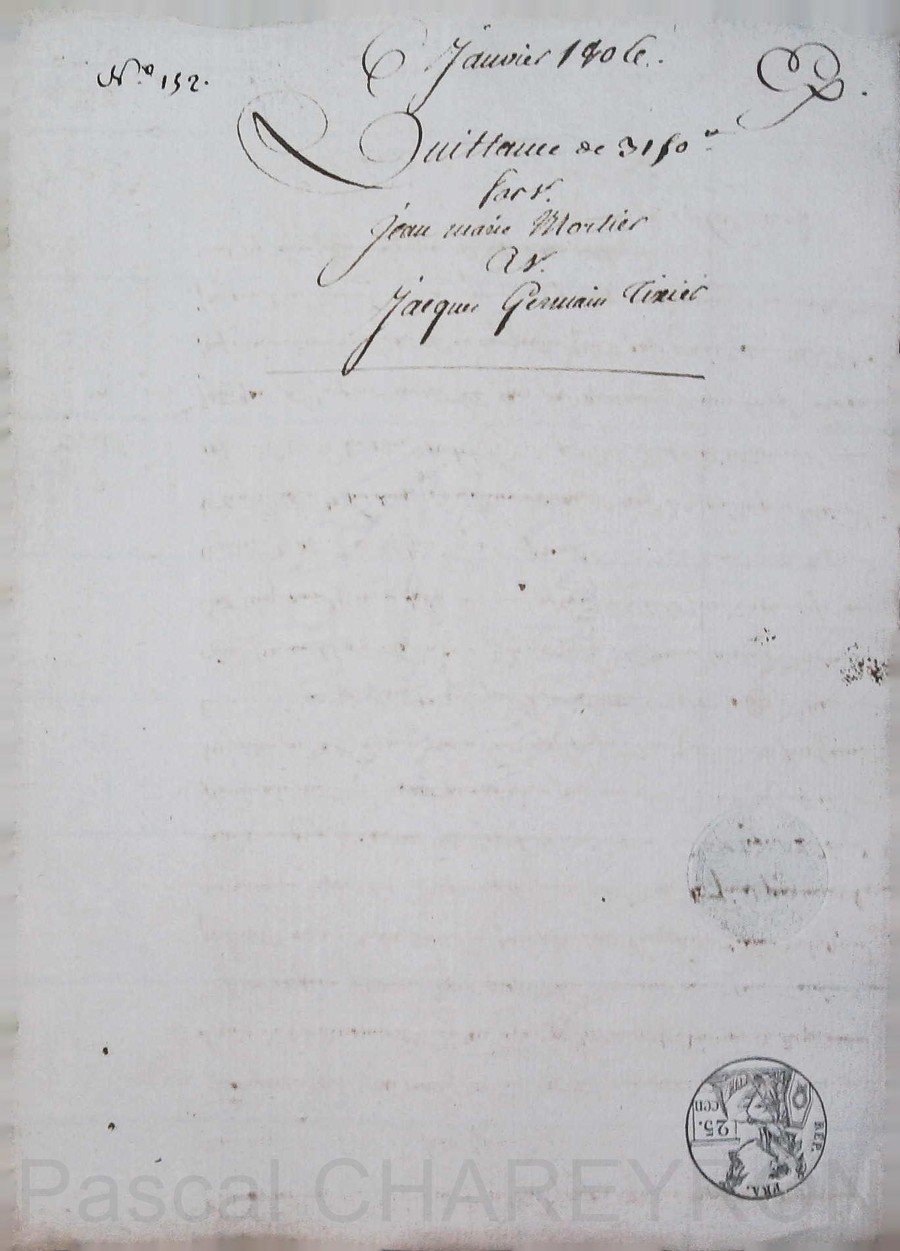 N.º 152.
6 Janvier 1806.
Quittance de 3150
Par
Jean marie Mortier
A
Jacques Germain Tixier
25.
CEN
REP.
FRA.
Pascal CHAREYRON